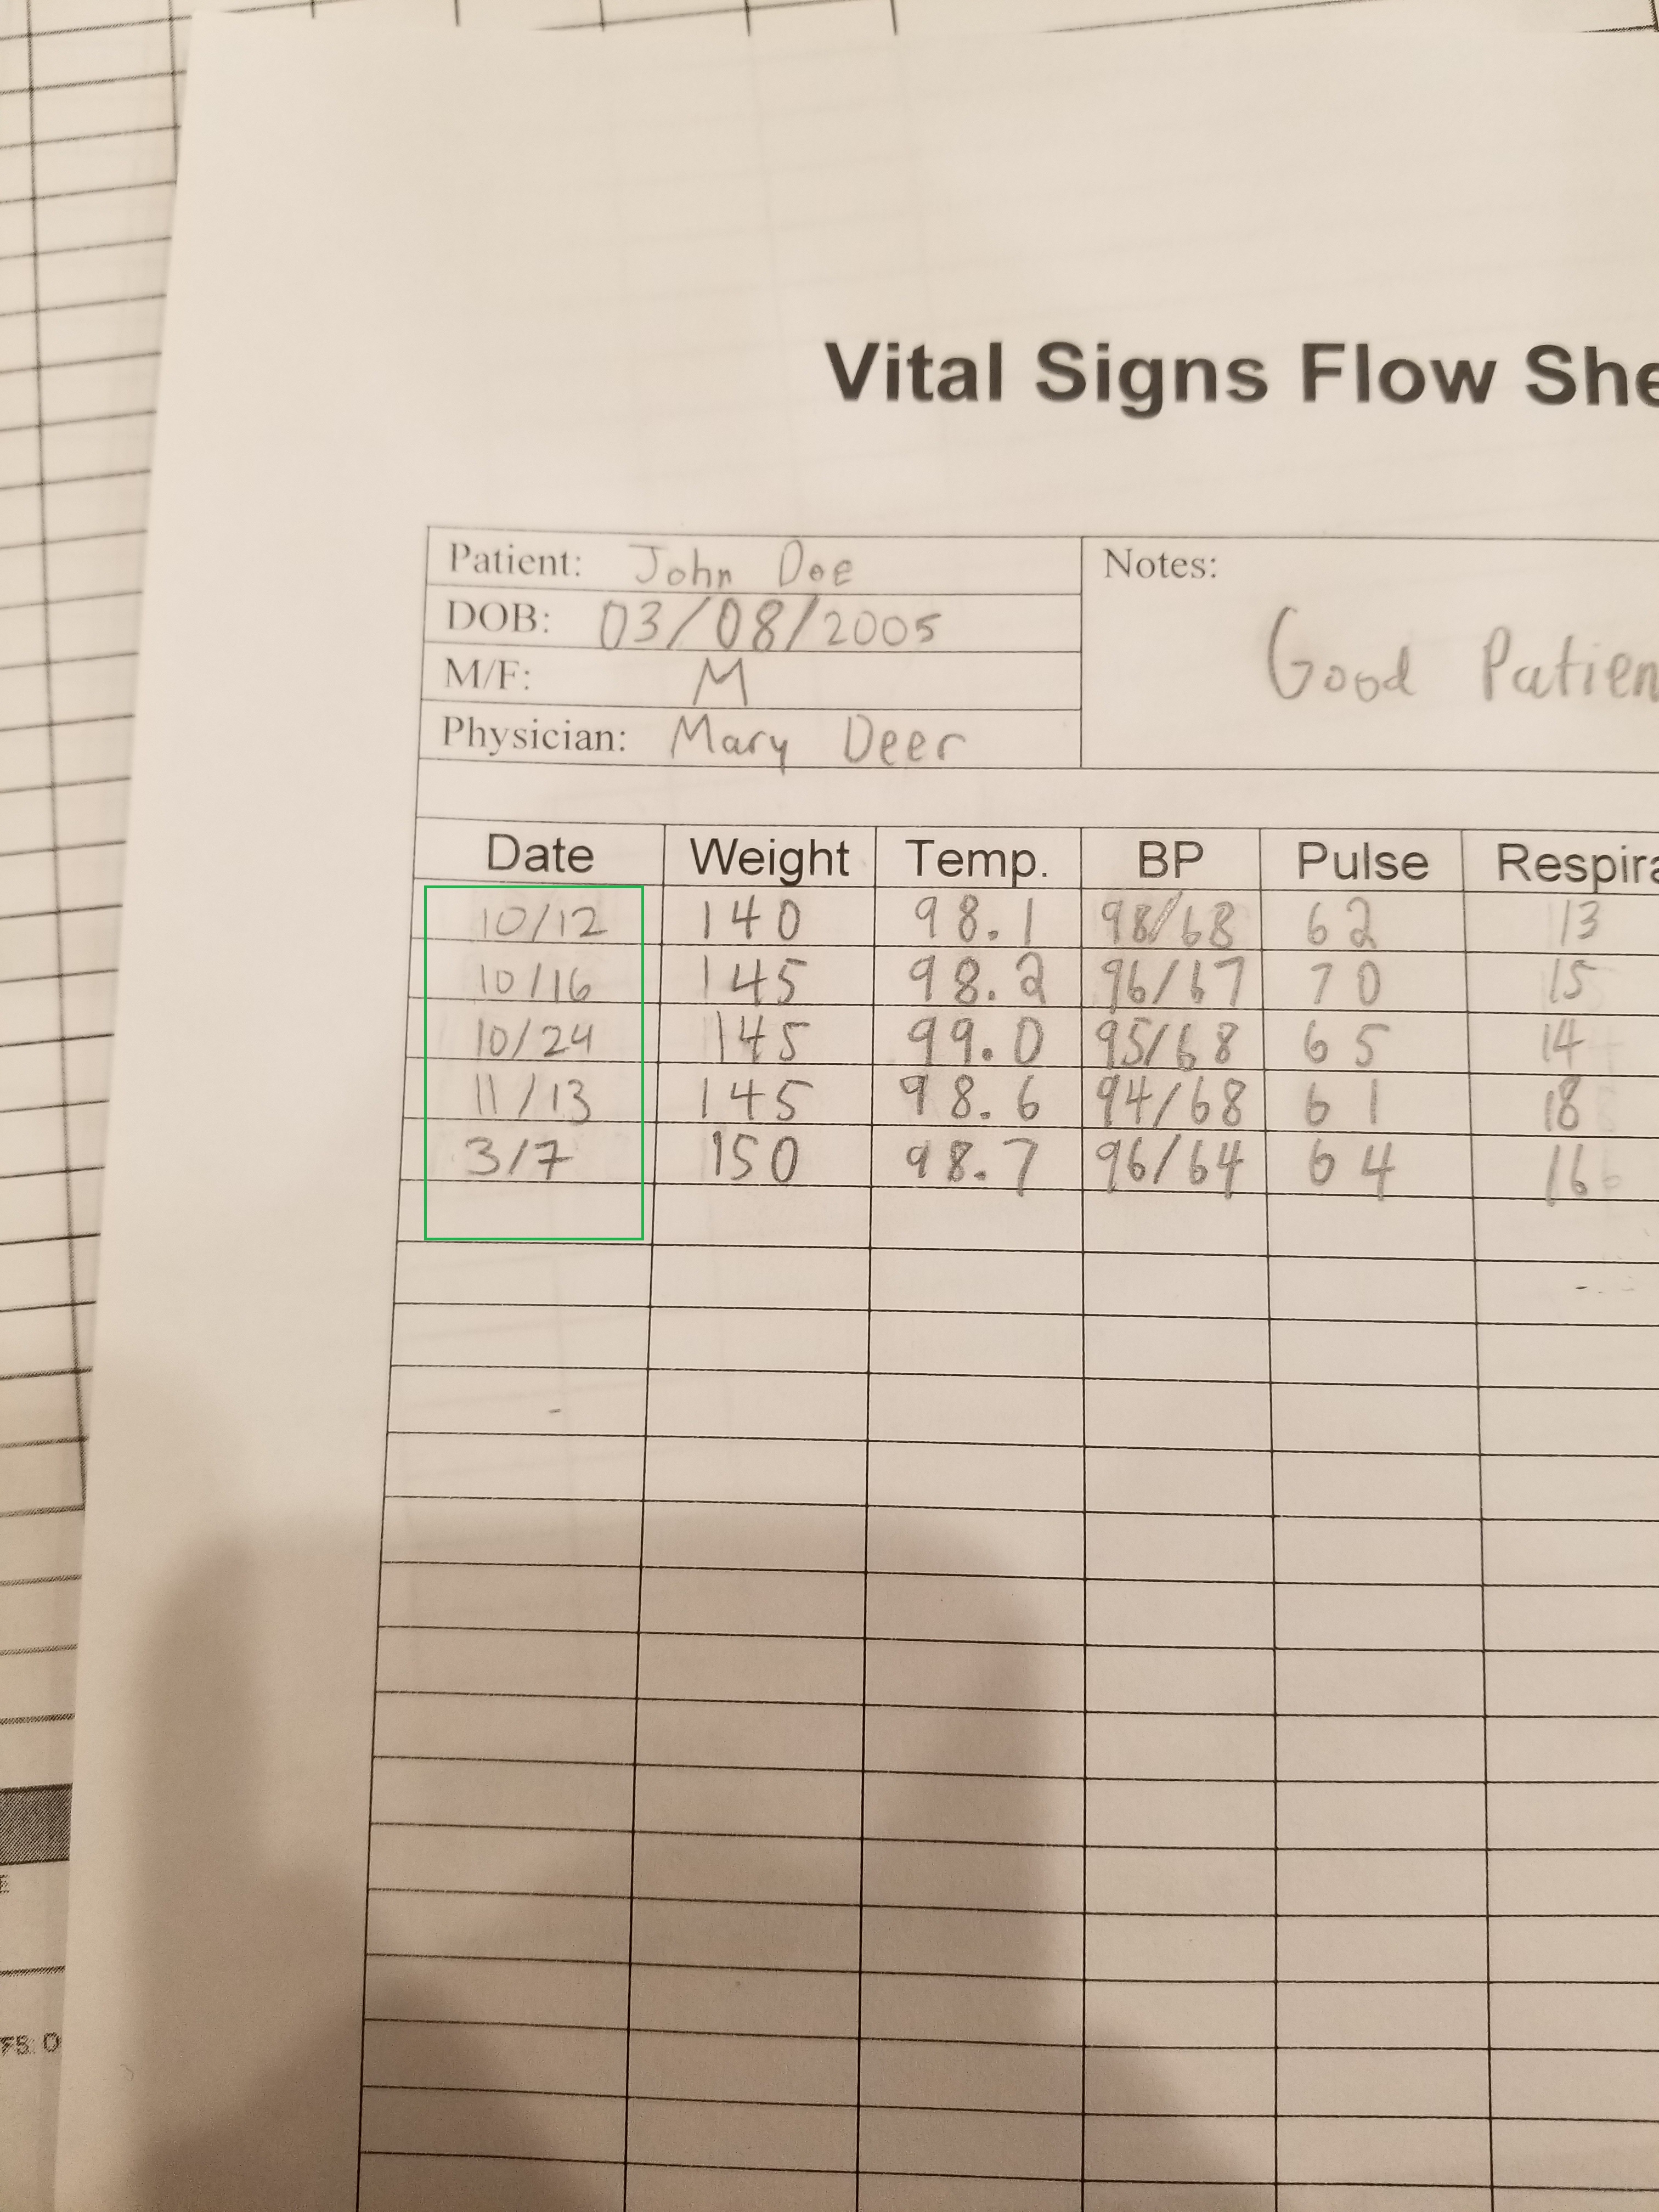 Vital Signs Flow She
Patient: John Doe
Notes:
DOB: 03/08/2005
Good Patien
M/F: M
Physician: Mary Deer
Date Weight Temp. BP Pulse Respira
10/12 140 98.1 98/68 62 13
10/16 145 98.2 96/67 70 15
10/24 145 99.0 95/68 65 14
11/13 145 98.6 94/68 61 18
3/7 150 98.7 96/64 64 16